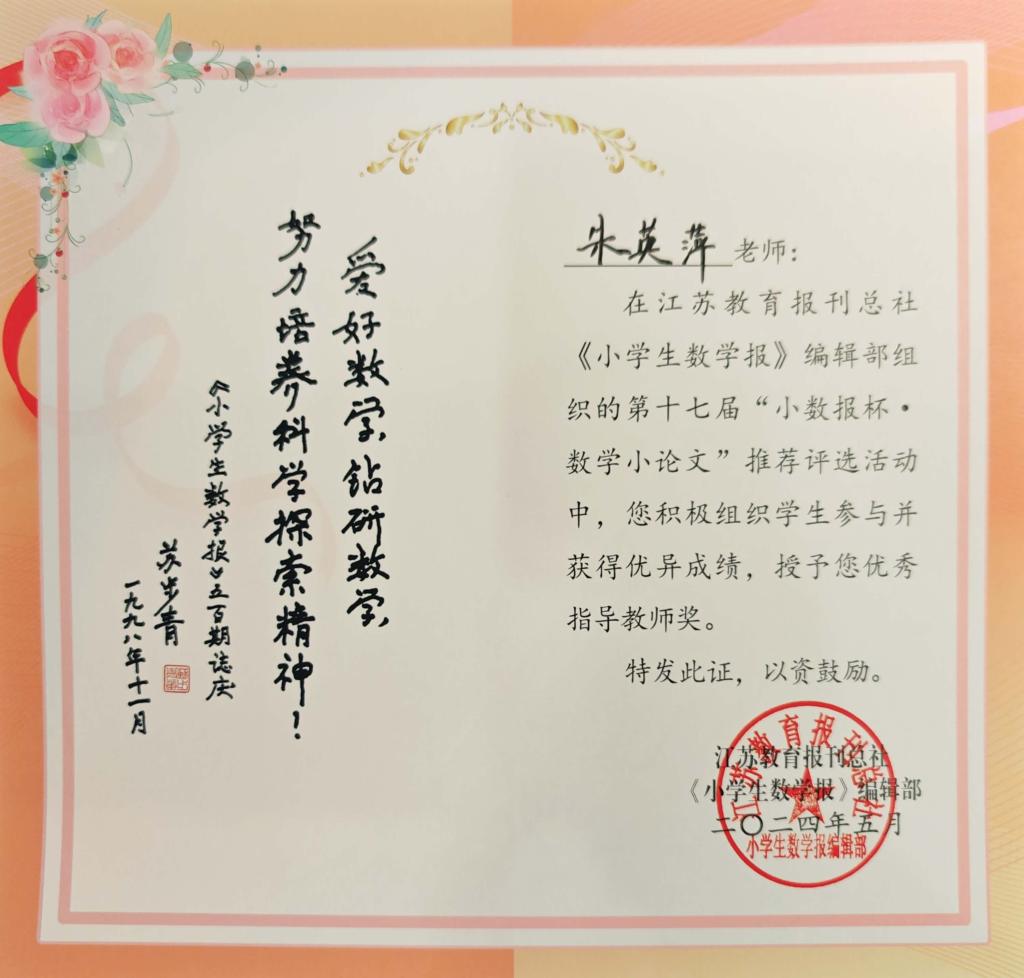 爱好数学、钻研数学、
努力培养科学探索精神！
《小学生数学报》五百期志庆
苏步青
一九九八年十一月
朱英萍 老师：
在江苏教育报刊总社
《小学生数学报》编辑部组
织的第十七届“小数报杯·
数学小论文”推荐评选活动
中，您积极组织学生参与并
获得优异成绩，授予您优秀
指导教师奖。
特发此证，以资鼓励。
江苏教育报刊总社
《小学生数学报》编辑部
二〇二四年五月
江苏教育报刊总社
小学生数学报编辑部